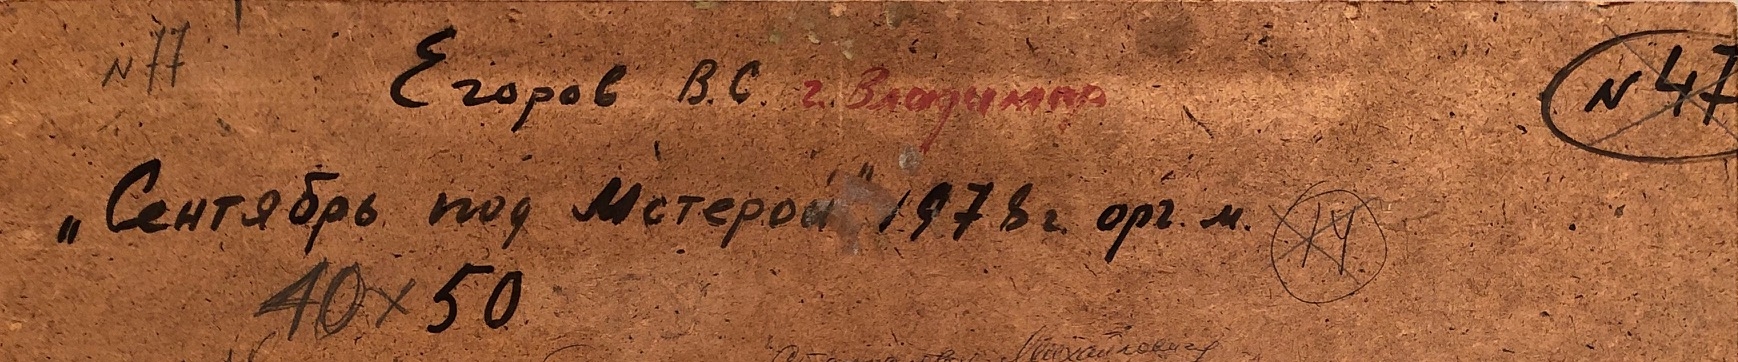 N 77 Егоров В.С. г. Владимир N 47
„Сентябрь под Мстерой" 1978 г. орг. м. 14
40х50
Михайлович